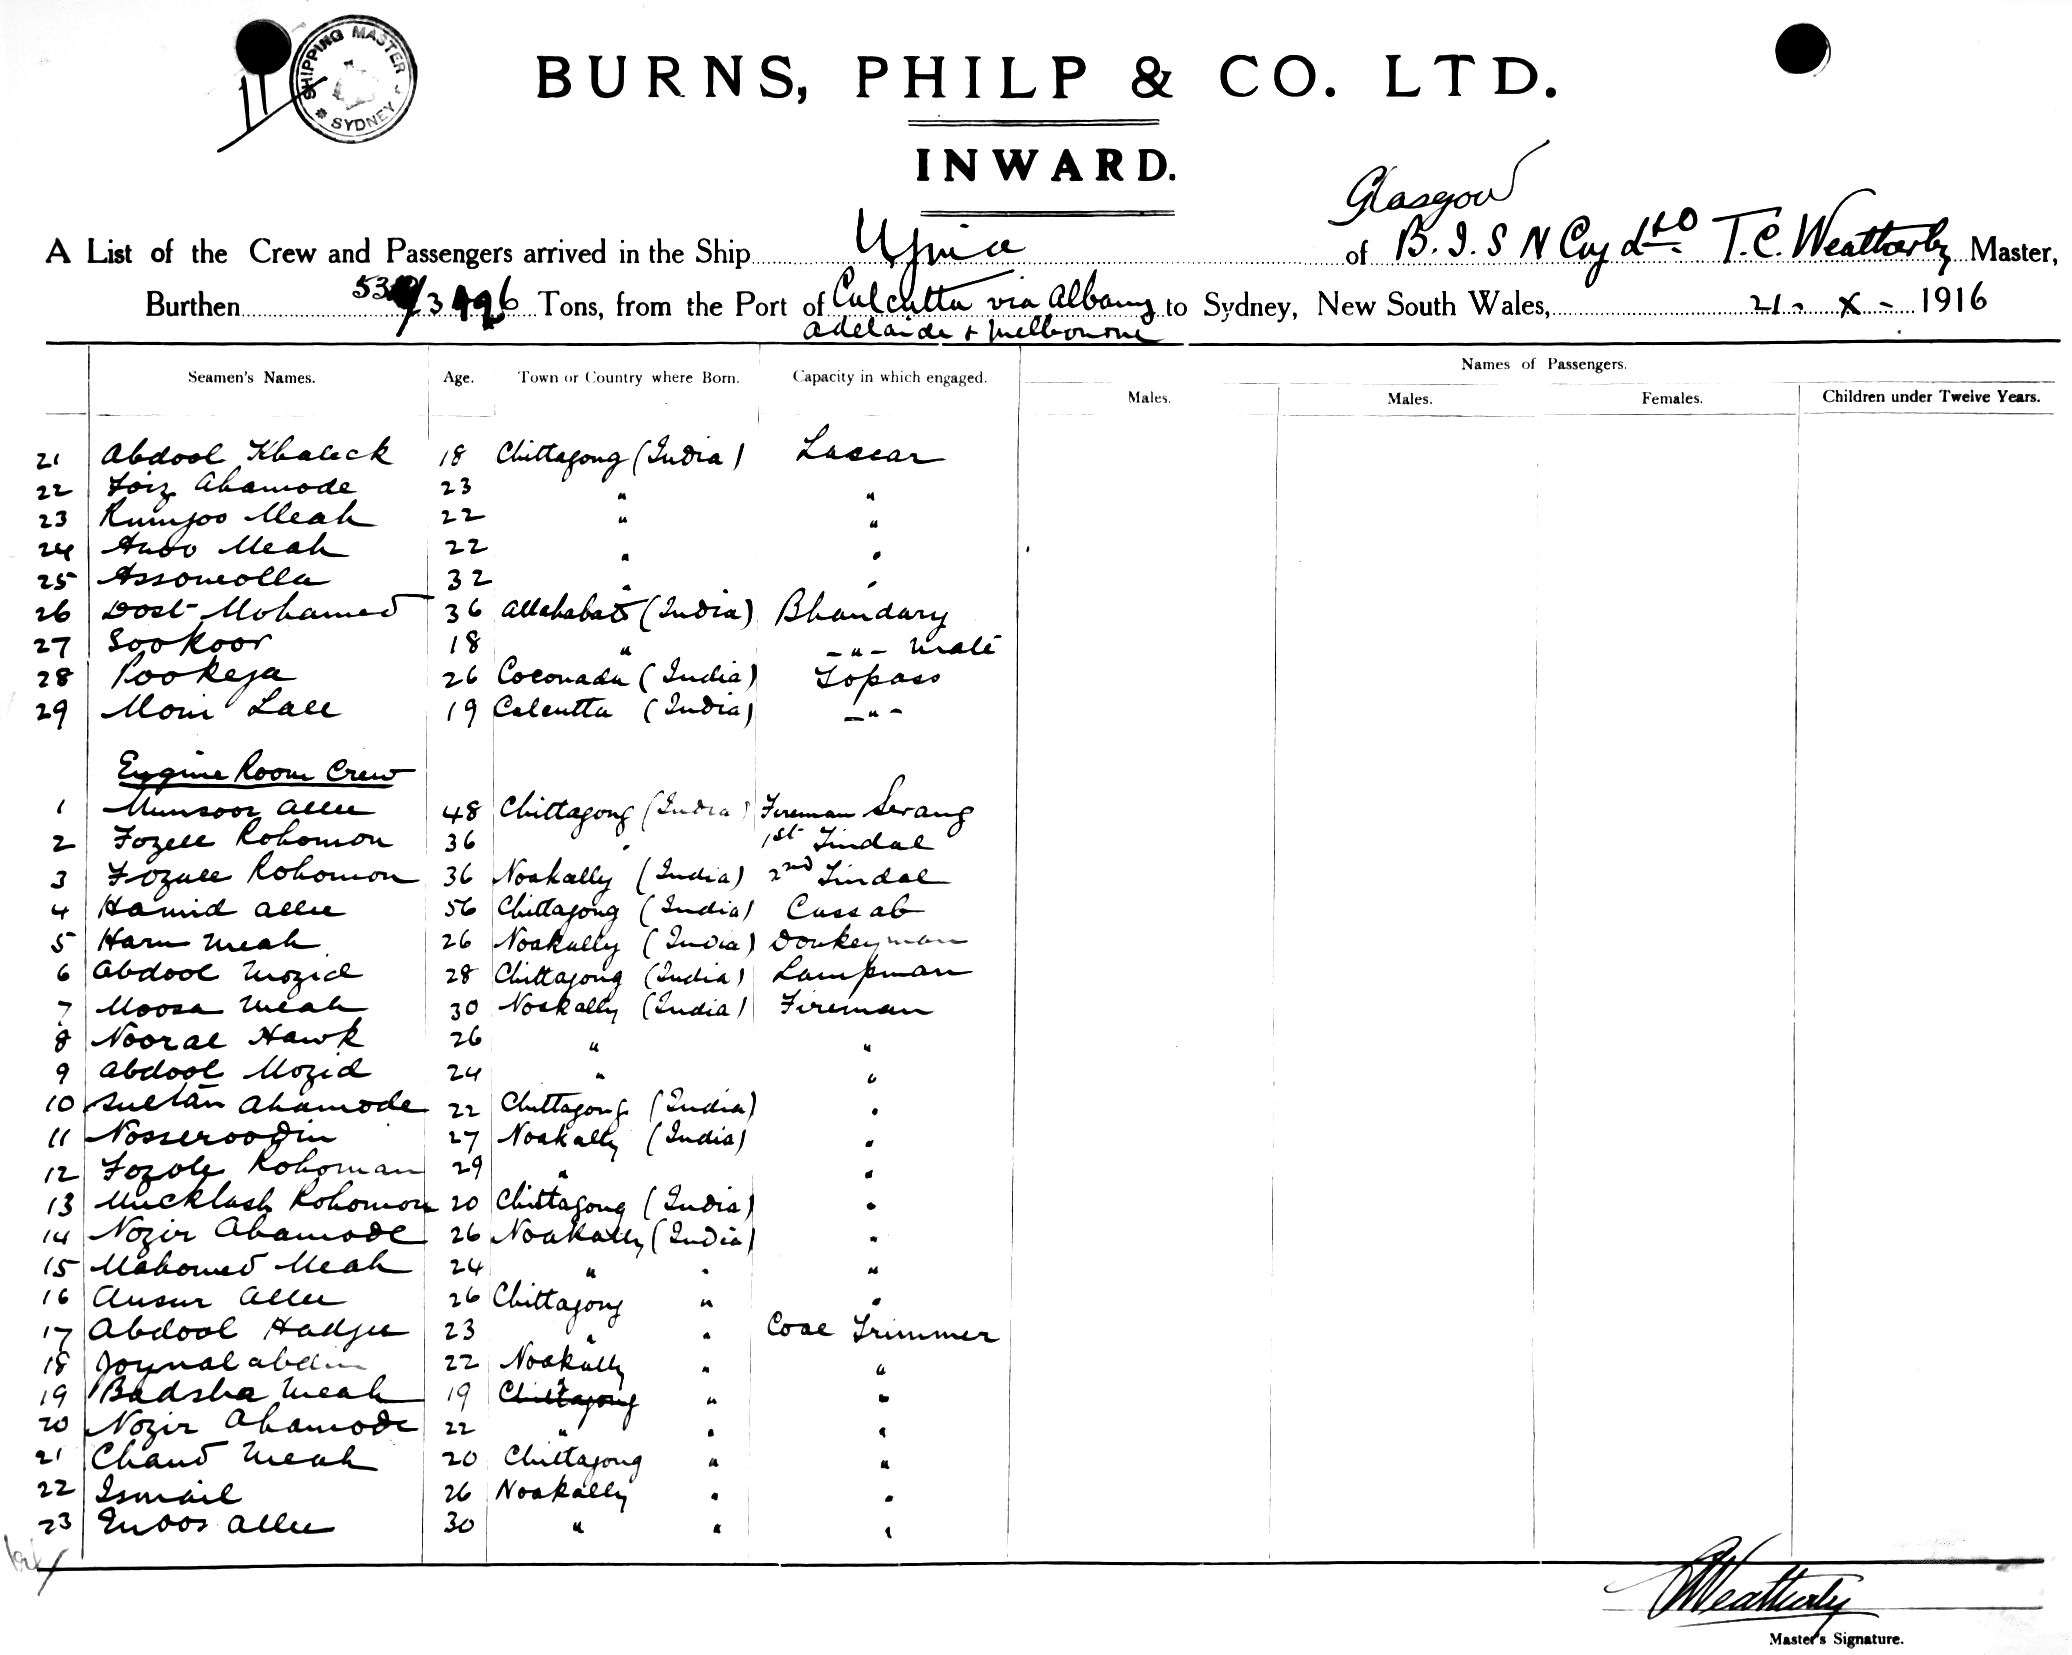 SHIPPING MASTER
SYDNEY
BURNS, PHILP & CO. LTD.
INWARD.
Glasgow
A List of the Crew and Passengers arrived in the Ship Ujina of B.I.S N Coy Ltd T.C. Weatherby Master,
Burthen Tons, from the Port of Calcutta via Albany to Sydney, New South Wales, 21 - X - 1916
Adelaide & Melbourne
Seamen's Names. Age. Town or Country where Born. Capacity in which engaged. Names of Passengers.
Males. Males. Females. Children under Twelve Years.
21 Abdool Khaleck 18 Chittagong (India) Lascar
22 Foiz Ahamode 23 " "
23 Rumjoo Meah 22 " "
24 Meah 22 " "
25 Assomolla 32 " "
26 Dost Mohamed 36 Allahabad (India) Bhandary
27 Sookoor 18 " -"- Mate
28 Pookeya 26 Coconada (India) Topass
29 Moni Lall 19 Calcutta (India) -"-
Engine Room Crew
1 Munsoor Allee 48 Chittagong (India) Fireman Serang
2 Fozell Rohomon 36 " 1st Tindal
3 Fozull Rohomon 36 Noakally (India) 2nd Tindal
4 Hamid Allee 56 Chittagong (India) Cassab
5 Haru Meah 26 Noakally (India) Donkeyman
6 Abdool Mozid 28 Chittagong (India) Lampman
7 Moosa Meah 30 Noakally (India) Fireman
8 Nooral Hawk 26 " "
9 Abdool Mozid 24 " "
10 Sultan Ahamode 22 Chittagong (India) "
11 Nosseroodin 27 Noakally (India) "
12 Fozole Rohoman 29 " "
13 Mucklash Rohomon 20 Chittagong (India) "
14 Nozir Ahamode 26 Noakally (India) "
15 Mahomed Meah 24 " " "
16 Ausur Allee 26 Chittagong " "
17 Abdool Hadjee 23 " " Coal Trimmer
18 Joynal abdin 22 Noakally " "
19 Badsha Meah 19 Chittagong " "
20 Nozir Ahamode 22 " " "
21 Chand Meah 20 Chittagong " "
22 Ismail 26 Noakally " "
23 Allee 30 " " "
Weatherby
Master's Signature.